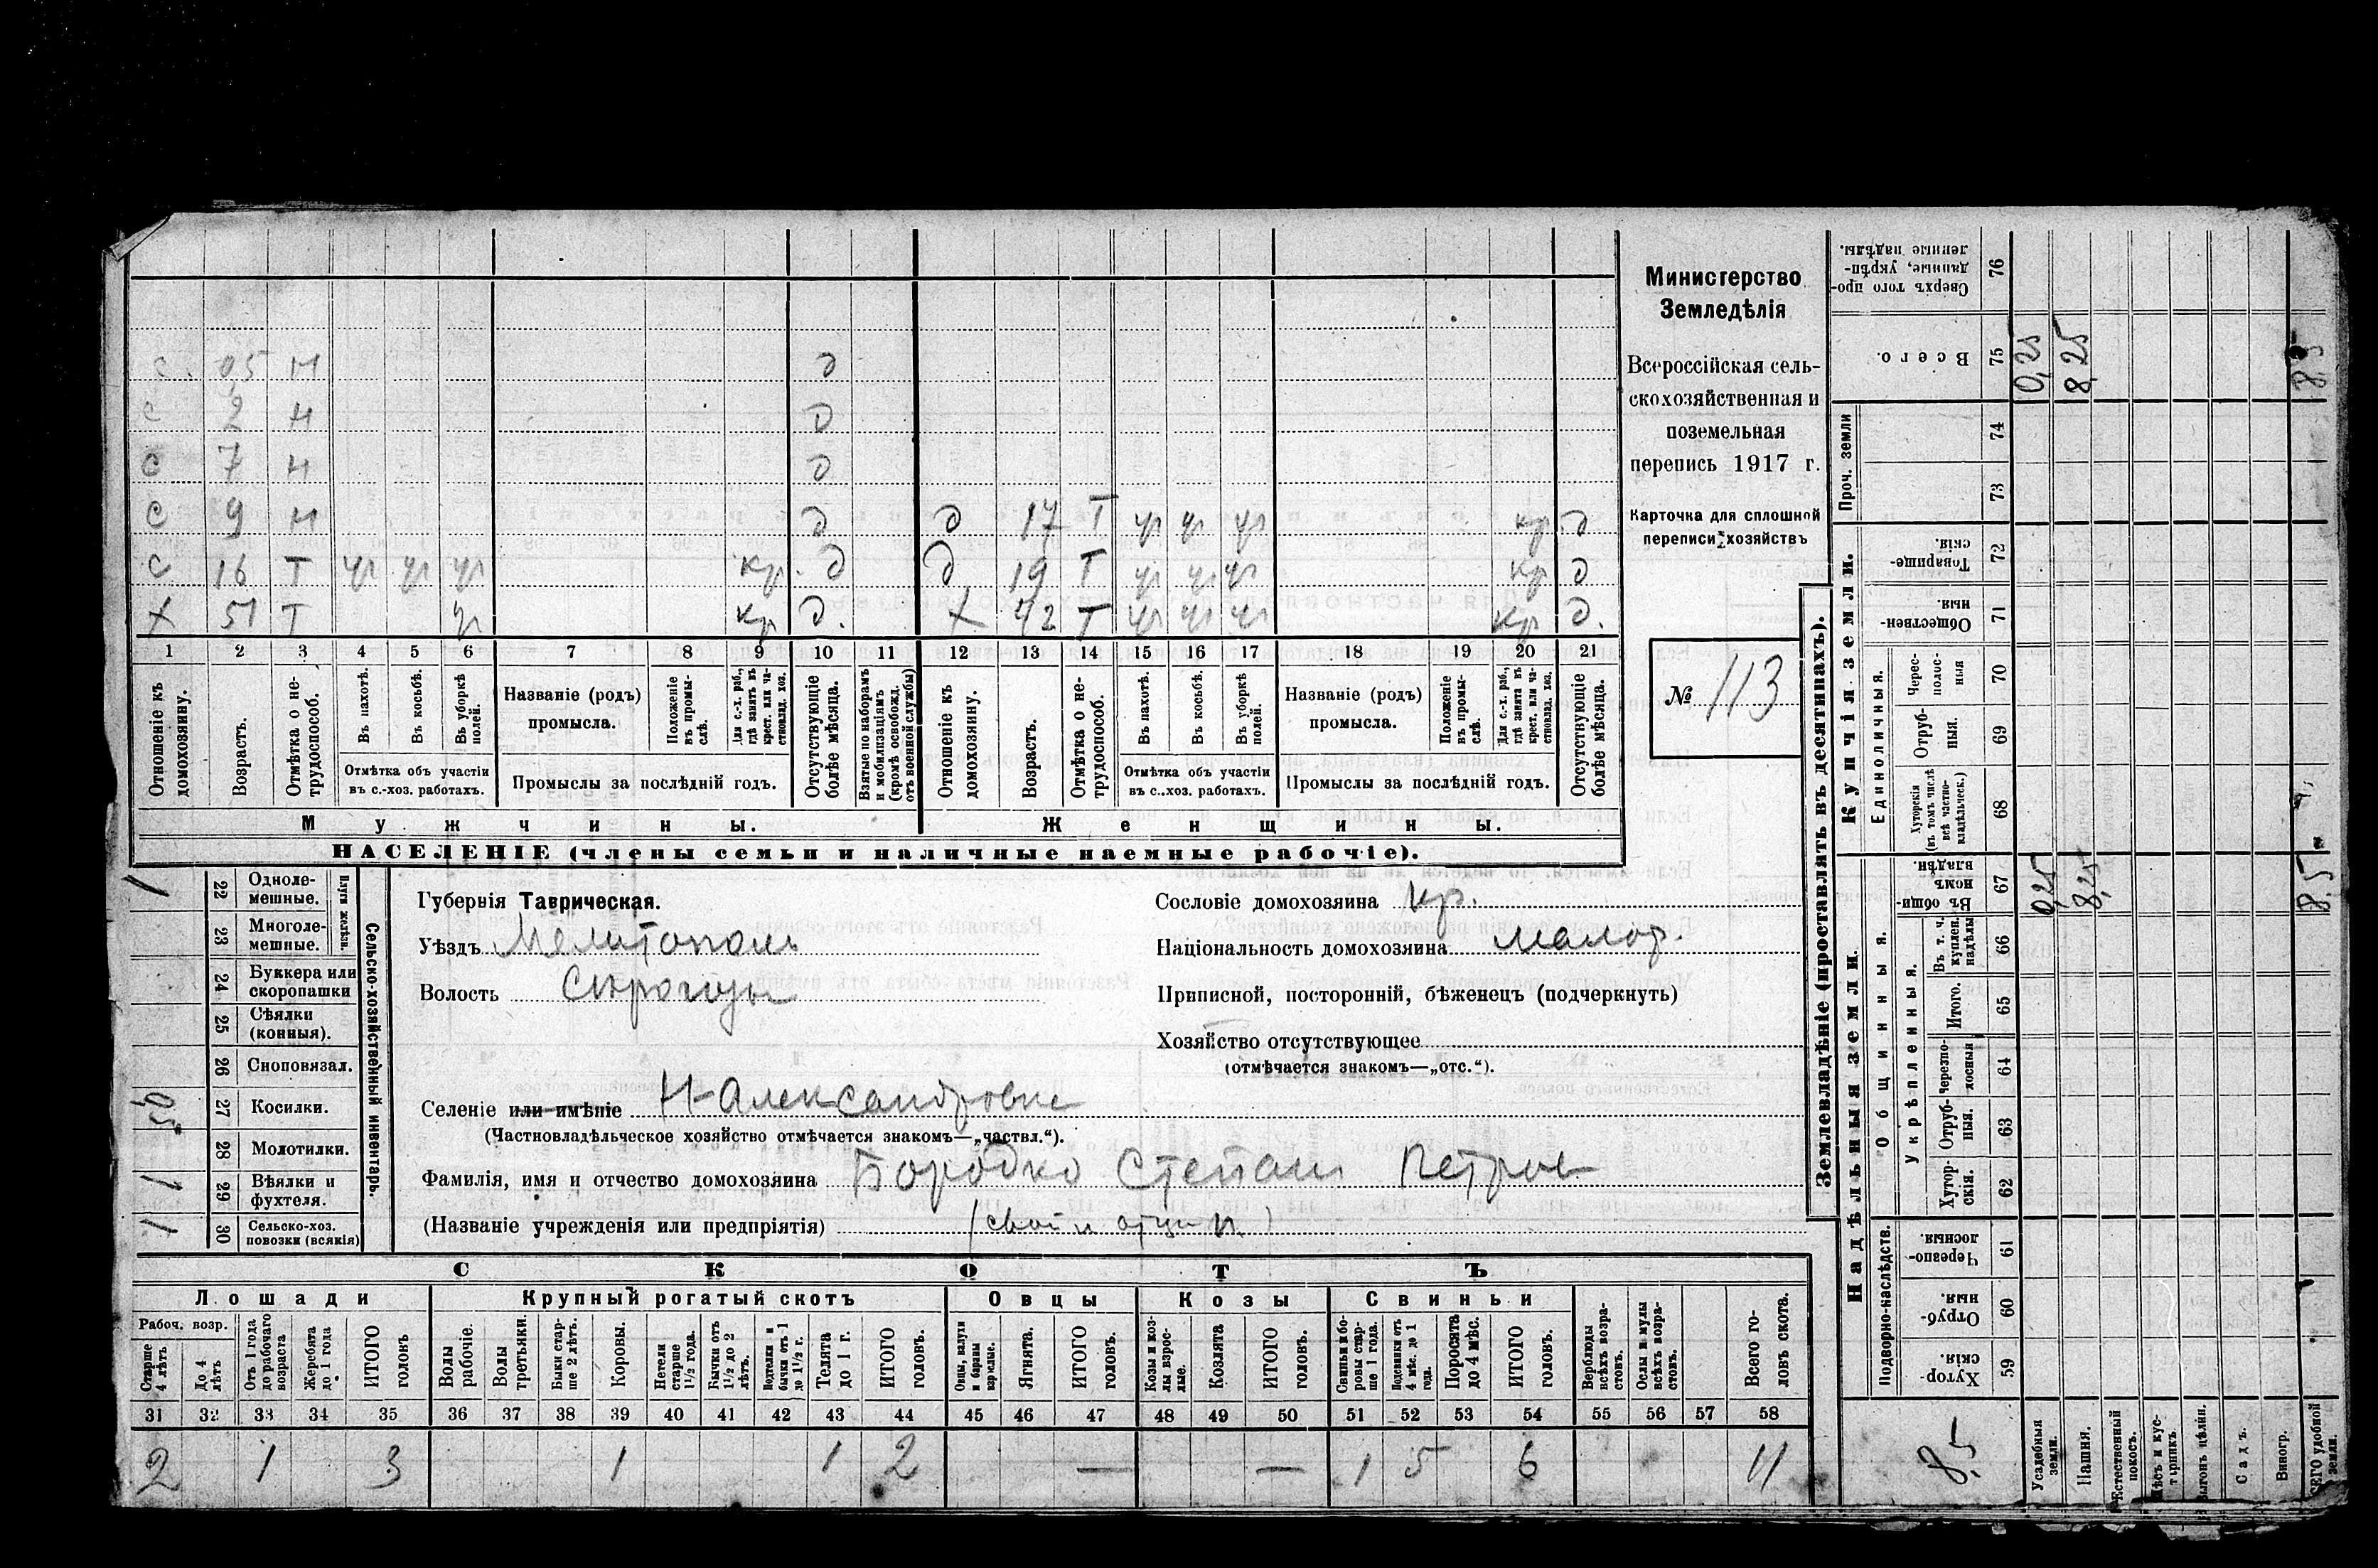 с. 0,5 н д
с 2 н д
с 7 н д
с 9 н д д 17 Т уч уч уч кр. д
с 16 Т уч уч уч кр. д д 19 Т уч уч уч кр д
х 51 Т уч кр д. х 42 Т уч уч уч кр д.
1 2 3 4 5 6 7 8 9 10 11 12 13 14 15 16 17 18 19 20 21
Отношеніе къ домохозяину.
Возрастъ.
Отмѣтка о нетрудоспособ.
Въ пахотѣ.
Въ косьбѣ.
Въ уборкѣ полей.
Отмѣтка объ участіи въ с.-хоз. работахъ.
Названіе (родъ) промысла.
Положеніе въ промыслѣ.
Для с.-х. раб., гдѣ занятъ въ крест. или частновлад. хоз.
Промыслы за послѣдній годъ.
Отсутствующіе болѣе мѣсяца.
Взятые по наборамъ и мобилизаціямъ (кромѣ освобожд. отъ военной службы)
Отношеніе къ домохозяину.
Возрастъ.
Отмѣтка о нетрудоспособ.
Въ пахотѣ.
Въ косьбѣ.
Въ уборкѣ полей.
Отмѣтка объ участіи въ с..хоз. работахъ.
Названіе (родъ) промысла.
Положеніе въ промыслѣ.
Для с.-х. раб., гдѣ занята въ крест. или частновлад. хоз.
Промыслы за послѣдній годъ.
Отсутствующіе болѣе мѣсяца.
Мужчины. Женщины.
НАСЕЛЕНІЕ (члены семьи и наличные наемные рабочіе).
Министерство
Земледѣлія
Всероссійская сель-
скохозяйственная и
поземельная
перепись 1917 г.
Карточка для сплошной
переписи хозяйствъ
№ 113
Сельско-хозяйственный инвентарь.
Плуги желѣзн.
1 22 Одноле-мешные.
23 Многоле-мешные.
24 Буккера или скоропашки
25 Сѣялки (конныя).
26 Сноповязал.
0,5 27 Косилки.
28 Молотилки.
1 29 Вѣялки и фухтеля.
1 30 Сельско-хоз. повозки (всякія)
Губернія Таврическая.
Уѣздъ Мелитополь
Волость
Сословіе домохозяина кр.
Національность домохозяина малор.
Приписной, посторонній, бѣженецъ (подчеркнуть)
Хозяйство отсутствующее
(отмѣчается знакомъ—„отс.“).
Селеніе или имѣніе Н-Александровка
(Частновладѣльческое хозяйство отмѣчается знакомъ—„частвл.“).
Фамилія, имя и отчество домохозяина Бородко Степан Петров
(Названіе учрежденія или предпріятія)
СКОТЪ
Лошади Крупный рогатый скотъ Овцы Козы Свиньи
Рабоч. возр.
Старше 4 лѣтъ
До 4 лѣтъ
Отъ 1 года до рабочаго возраста
Жеребята до 1 года
ИТОГО головъ
Волы рабочіе.
Волы третьяки.
Быки старше 2 лѣтъ.
Коровы.
Нетели старше 1½ года.
Бычки отъ 1½ до 2 лѣтъ.
Подтелки и бычки отъ 1 до 1½ г.
Телята до 1 г.
ИТОГО головъ.
Овцы, валухи и бараны взрослые.
Ягнята.
ИТОГО головъ.
Козы и козлы взрослые.
Козлята
ИТОГО головъ.
Свиньи и боровы старше 1 года.
Подсвинки отъ 4 мѣс. до 1 года.
Поросята до 4 мѣс.
ИТОГО головъ.
Верблюды всѣхъ возрастовъ.
Ослы и мулы всѣхъ возрастовъ.
Всего головъ скота.
31 32 33 34 35 36 37 38 39 40 41 42 43 44 45 46 47 48 49 50 51 52 53 54 55 56 57 58
2 1 3 1 1 2 — — 1 5 6 11
Землевладѣніе (проставлять въ десятинахъ).
Надѣльныя земли. Купчія земли. Проч. земли
Подворно-наслѣдств. Общинныя. Укрѣпленныя. Единоличныя.
Хуторскія 59
Отрубныя 60
Черезполосныя. 61
Хуторскія. 62
Отрубныя. 63
Черезполосныя 64
Итого. 65
Въ т. ч. куплен. надѣлы 66
Въ общинномъ владѣн. 67
Хуторскія (въ томъ числѣ всѣ частновладѣльческ.) 68
Отрубныя. 69
Черезполосныя 70
Общественныя 71
Товарищескія. 72
73
74
Всего. 75
Сверхъ того проданные, укрѣпленные надѣлы. 76
Усадебныя земли. 0,25 0,25
Пашня. 8,25 8,25
Естественный покосъ.
Лѣсъ и кустарникъ.
Выгонъ цѣлин.
Садъ.
Виногр.
ВСЕГО удобной земли. 8,5 8,5
8,5